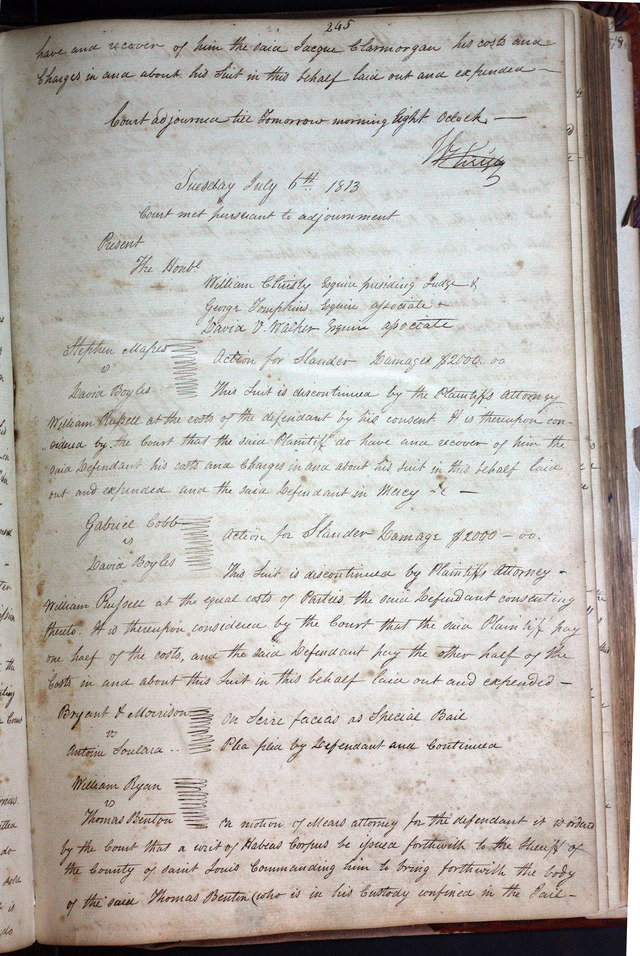 245
have and recover of him the said Jacque Clarmorgan his costs and
Charges in and about his Suit in this behalf laid out and expended —
Court adjourned till Tomorrow morning Eight Oclock —
Tuesday July 6th 1813
Court met pursuant to adjournment
Present
The Honbl
William Christy Esquire presiding Judge &
George Tompkins Esquire associate &
David V. Walker Esquire associate
Stephen Mapes
vs
Action for Slander Damages $2000.00
David Boyles
This Suit is discontinued by the Plaintiffs Attorney
William Russell at the costs of the defendant by his consent It is thereupon con-
sidered by the Court that the said Plaintiff do have and recover of him the
said Defendant his costs and Charges in and about his suit in this behalf laid
out and expended and the said Defendant in Mercy &c —
Gabriel Cobb
vs
Action for Slander Damage $2000-00.
David Boyles
This Suit is discontinued by Plaintiffs Attorney -
William Russell at the equal costs of Parties the said Defendant consenting
thereto. It is thereupon considered by the Court that the said Plaintiff pay
one half of the costs, and the said Defendant pay the other half of the
Costs in and about this Suit in this behalf laid out and expended —
Bryant & Morrison
vs
On Scire facias as Special Bail
Antoine Soulard ..
Plea filed by Defendant and Continued
William Ryan
vs
Thomas Benton
On motion of Mears attorney for the defendant it is ordered
by the Court that a writ of Habeas Corpus be issued forthwith to the Sheriff of
the County of saint Louis Commanding him to bring forthwith the body
of the said Thomas Benton (who is in his Custody confined in the Jail —